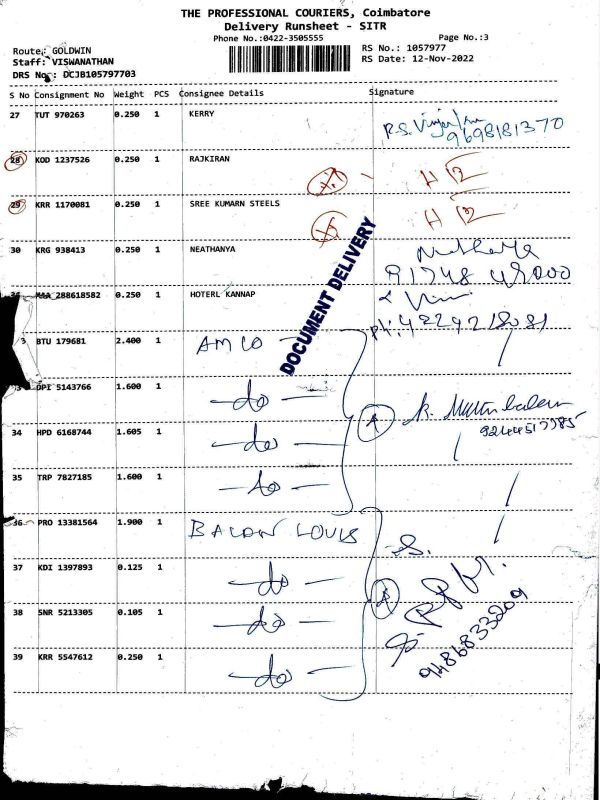 THE PROFESSIONAL COURIERS, Coimbatore
Delivery Runsheet - SITR
Phone No.:0422-3505555 Page No.:3
Route: GOLDWIN RS No.: 1057977
Staff: VISWANATHAN RS Date: 12-Nov-2022
DRS No.: DCJB105797703
S No Consignment No Weight PCS Consignee Details Signature
27 TUT 970263 0.250 1 KERRY
9698181370
28 KOD 1237526 0.250 1 RAJKIRAN
29 KRR 1170081 0.250 1 SREE KUMARN STEELS
30 KRG 938413 0.250 1 NEATHANYA
288618582 0.250 1 HOTERL KANNAP
DOCUMENT DELIVERY
BTU 179681 2.400 1 AMCO
DPI 5143766 1.600 1 -do-
34 HPD 6168744 1.605 1 -do-
35 TRP 7827185 1.600 1 -do-
36 PRO 13381564 1.900 1 BACON LOUIS
37 KDI 1397893 0.125 1 -do-
38 SNR 5213305 0.105 1 -do-
9486833209
39 KRR 5547612 0.250 1 -do-